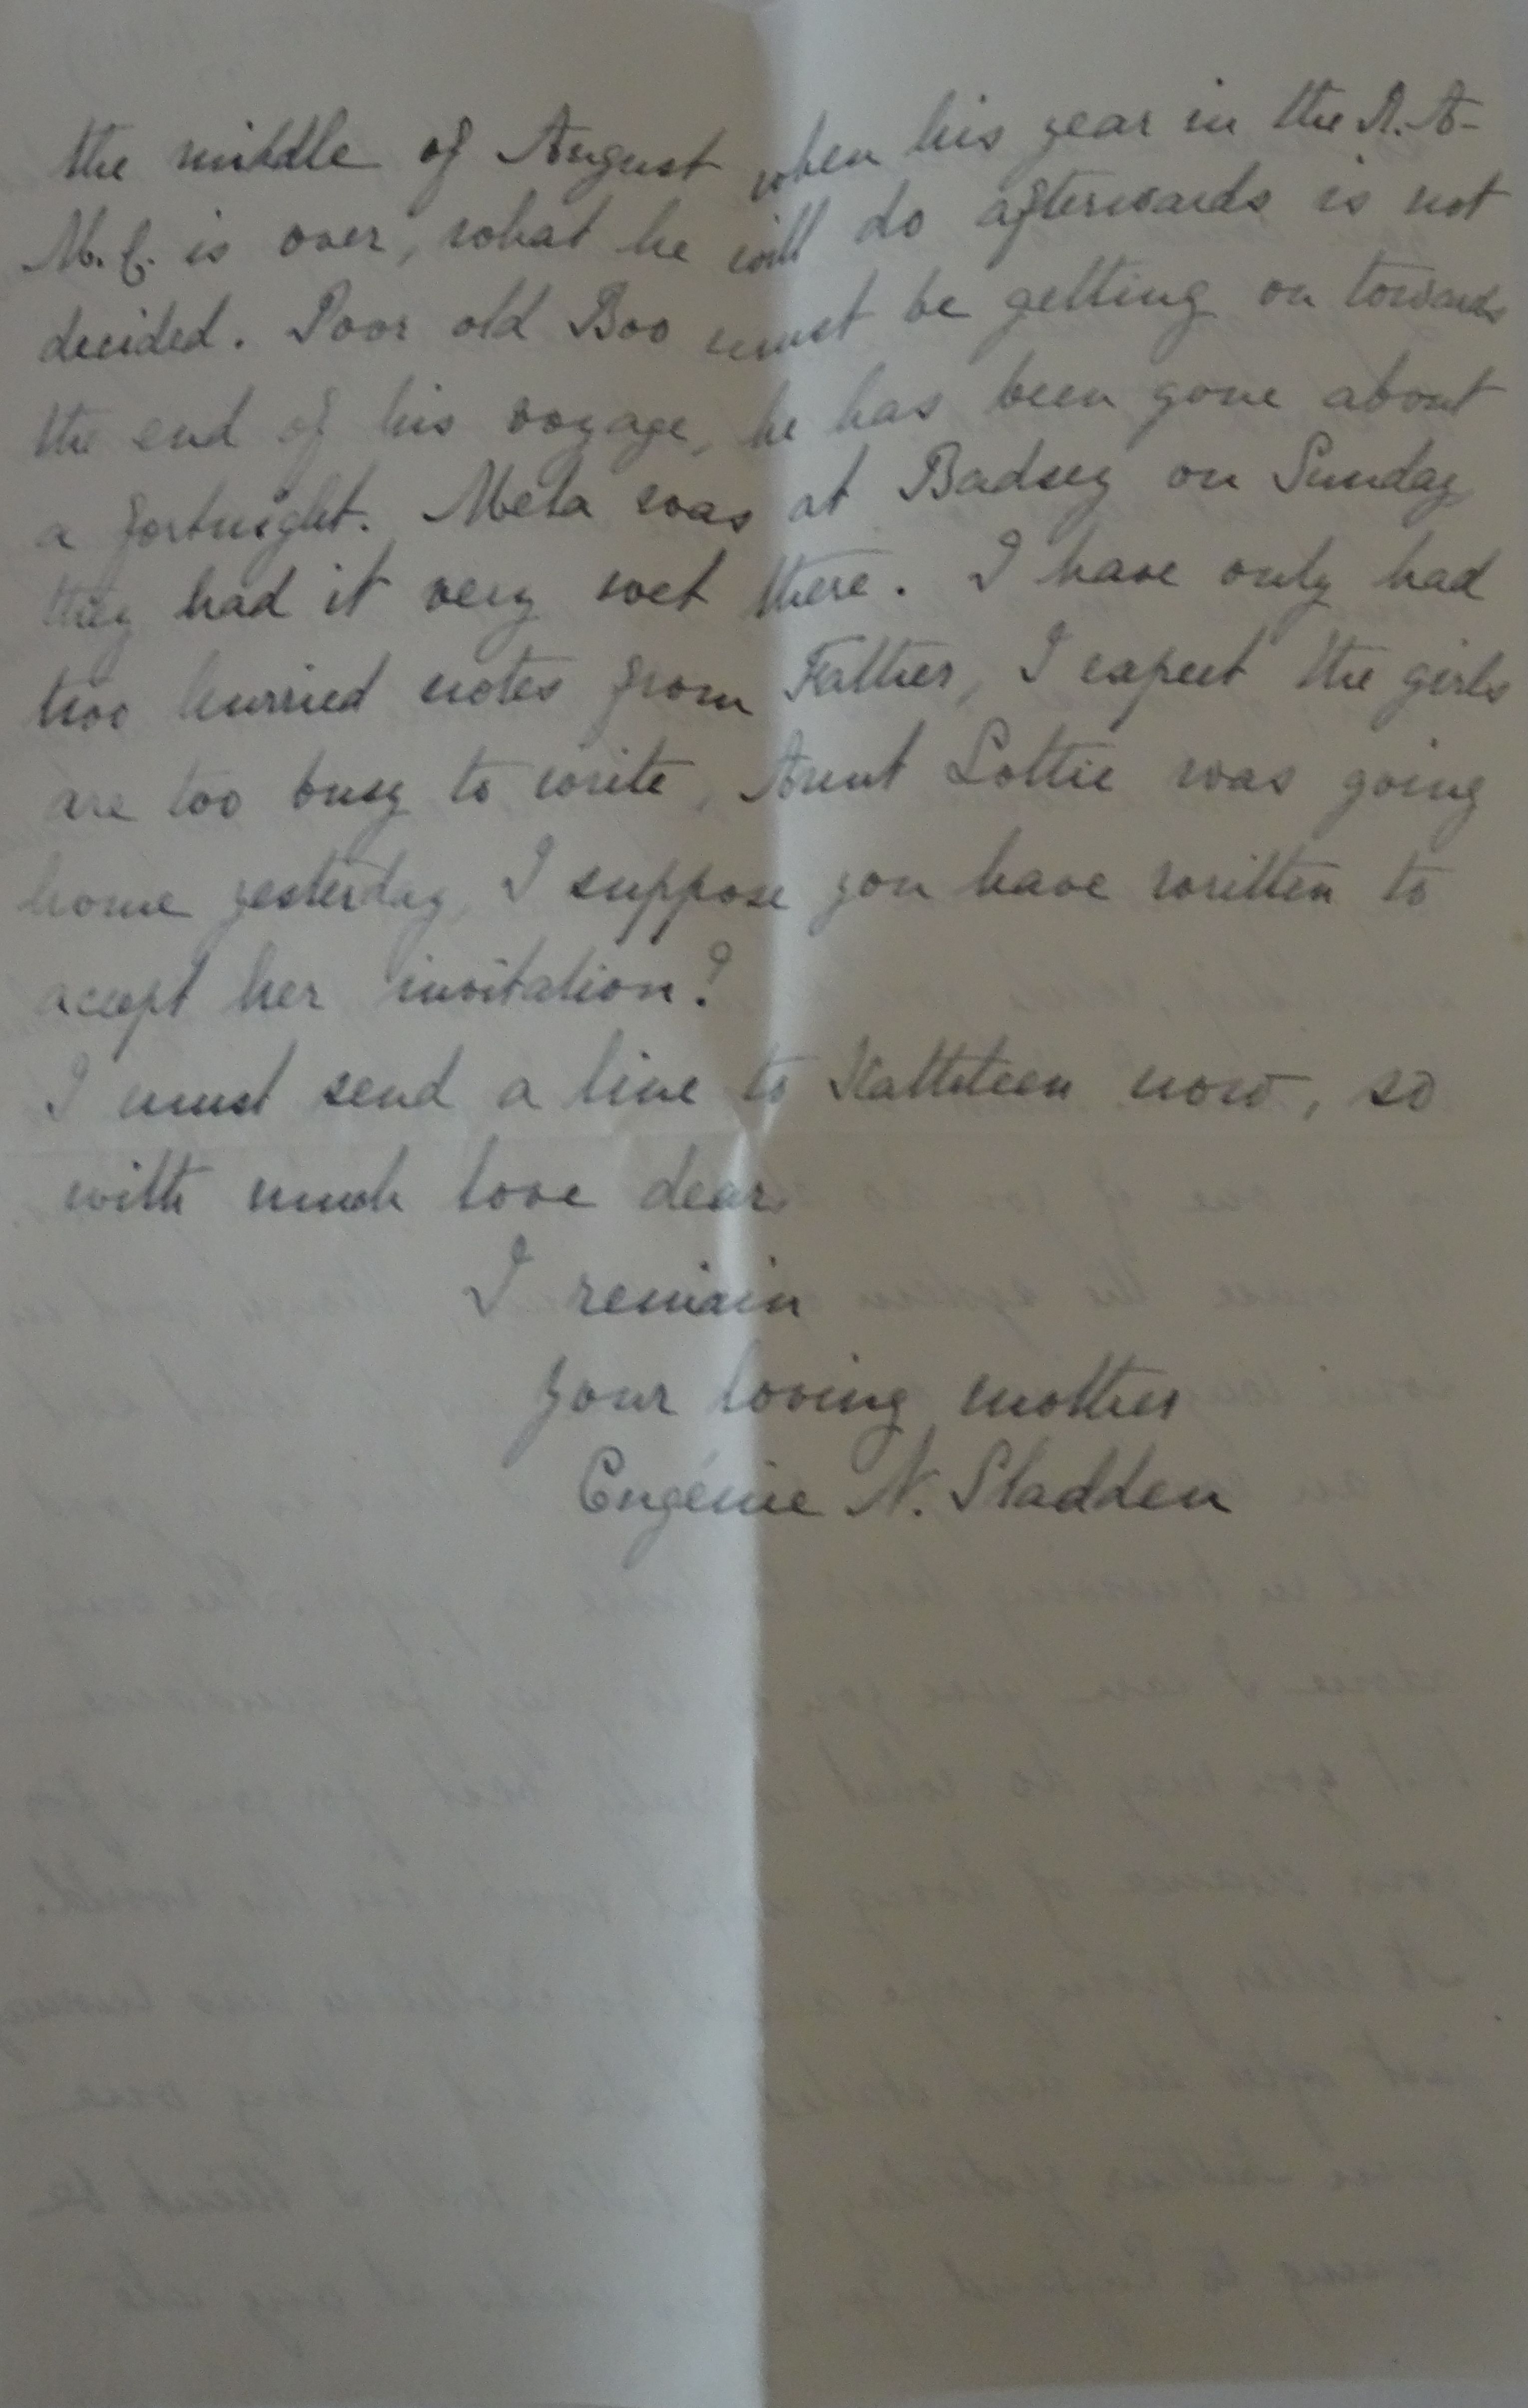 the middle of August when his year in the R.A-
M.C. is over, what he will do afterwards is not
decided. Poor old Boo must be getting on towards
the end of his voyage, he has been gone about
a fortnight. Mela was at Badsey on Sunday
they had it very wet there. I have only had
two hurried notes from Father, I expect the girls
are too busy to write, Aunt Lottie was going
home yesterday, I suppose you have written to
accept her invitation?
I must send a line to Kathleen now, so
with much love dear
I remain
Your loving mother
Eugénie N. Sladden